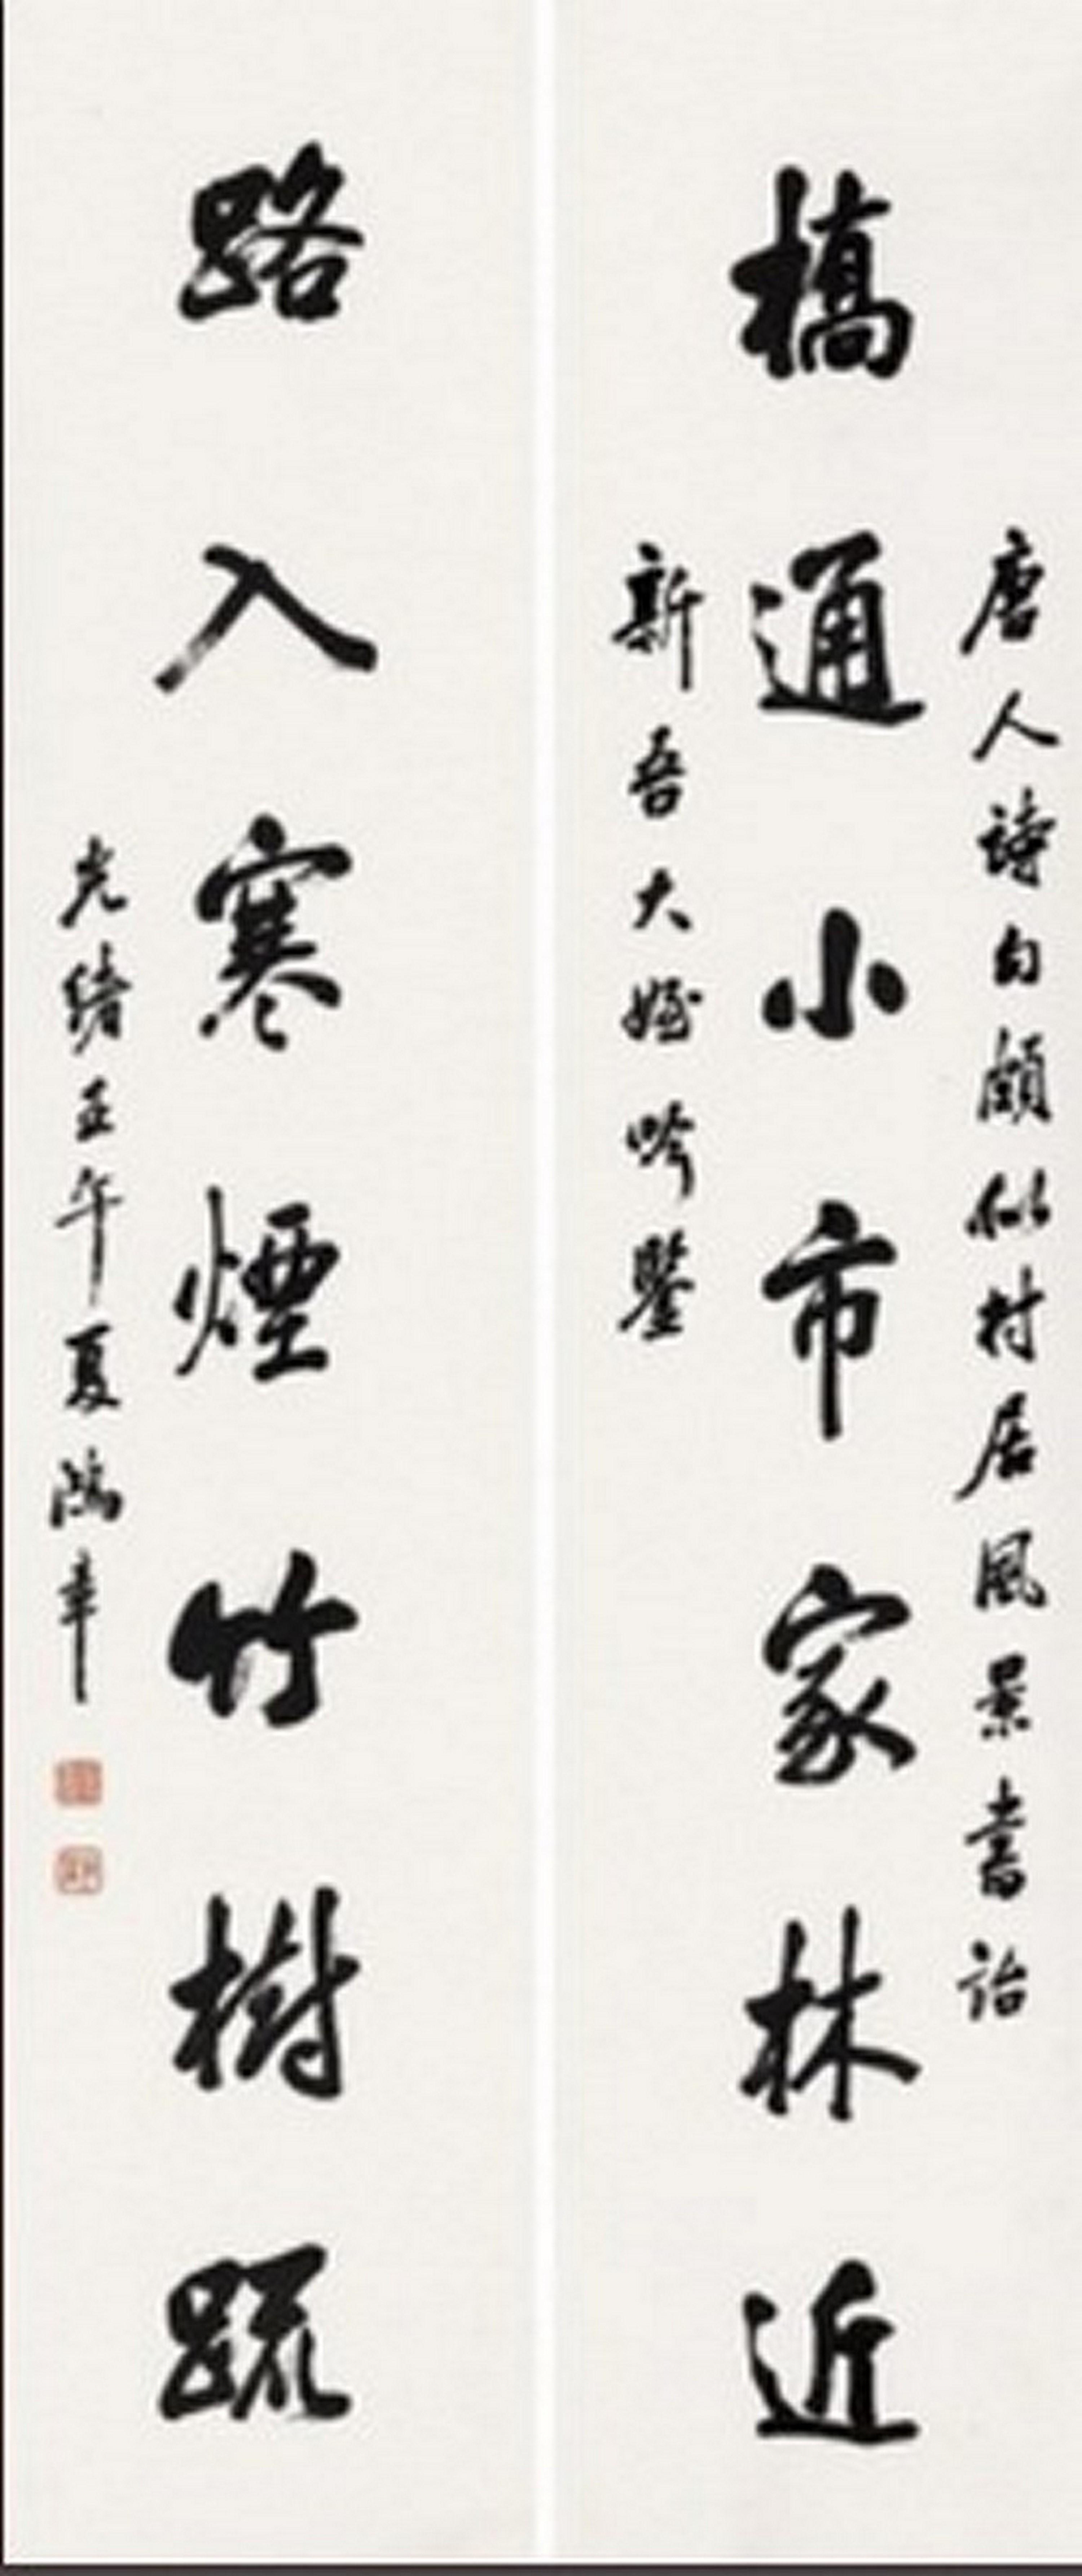 唐人詩句頗似村居風景書詒
橋通小市家林近
新吾大姪吟鑒
路入寒煙竹樹疏
光緒壬午夏鴻章